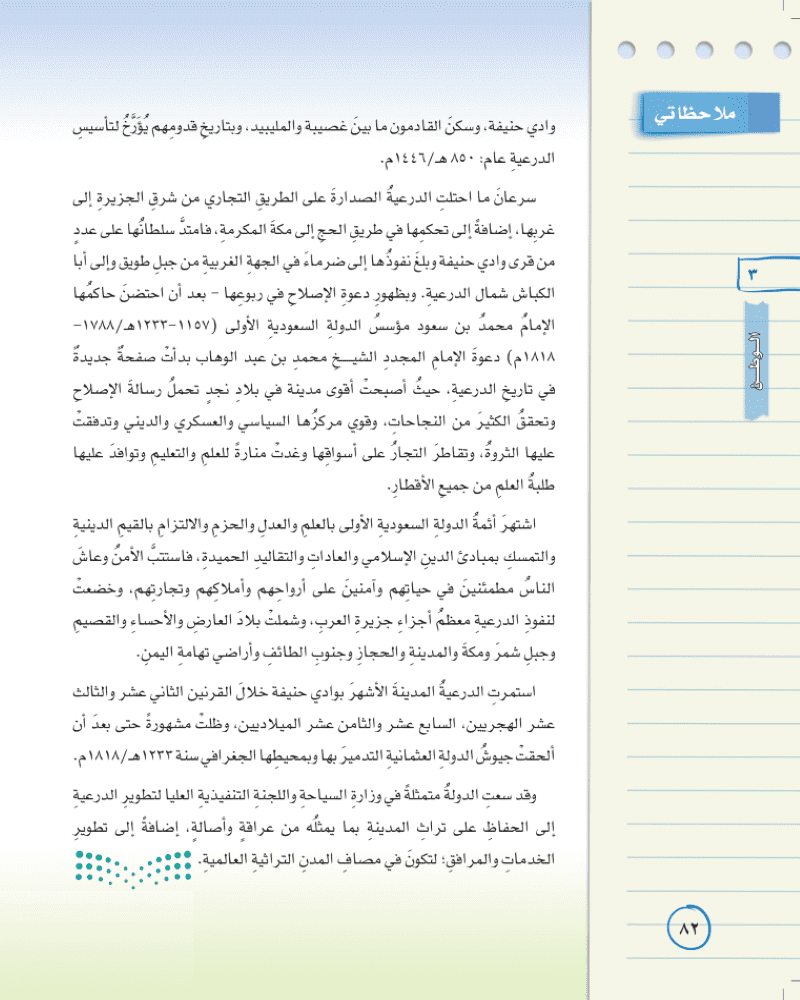 ملاحظاتي
٣
الوطن
وادي حنيفة، وسكنَ القادمون ما بينَ غصيبة والمليبيد، وبتاريخِ قدومِهم يُؤَرَّخُ لتأسيسِ
الدرعيةِ عام: ٨٥٠ هـ/١٤٤٦م.
سرعانَ ما احتلتِ الدرعيةُ الصدارةَ على الطريقِ التجاري من شرقِ الجزيرةِ إلى
غربِها، إضافةً إلى تحكمِها في طريقِ الحجِ إلى مكةَ المكرمةِ، فامتدَّ سلطانُها على عددٍ
من قرى وادي حنيفة وبلغَ نفوذُها إلى ضرماءَ في الجهةِ الغربيةِ من جبلِ طويق وإلى أبا
الكباش شمال الدرعيةِ. وبظهورِ دعوةِ الإصلاحِ في ربوعِها – بعد أن احتضنَ حاكمُها
الإمامُ محمدُ بن سعود مؤسسُ الدولةِ السعوديةِ الأولى (١١٥٧-١٢٣٣هـ/١٧٨٨-
١٨١٨م) دعوةَ الإمامِ المجددِ الشيـخِ محمدِ بن عبد الوهاب بدأتْ صفحةٌ جديدةٌ
في تاريخِ الدرعيةِ، حيثُ أصبحتْ أقوى مدينة في بلادِ نجدٍ تحملُ رسالةَ الإصلاحِ
وتحققُ الكثيرَ من النجاحاتِ، وقوي مركزُها السياسي والعسكري والديني وتدفقتْ
عليها الثروةُ، وتقاطرَ التجارُ على أسواقِها وغدتْ منارةً للعلمِ والتعليمِ وتوافدَ عليها
طلبةُ العلمِ من جميعِ الأقطارِ.
اشتهرَ أئمةُ الدولةِ السعوديةِ الأولى بالعلمِ والعدلِ والحزمِ والالتزامِ بالقيمِ الدينيةِ
والتمسكِ بمبادئِ الدينِ الإسلامي والعاداتِ والتقاليدِ الحميدةِ، فاستتبَّ الأمنُ وعاشَ
الناسُ مطمئنينَ في حياتِهم وآمنينَ على أرواحِهم وأملاكِهم وتجارتِهم، وخضعتْ
لنفوذِ الدرعيةِ معظمُ أجزاءِ جزيرةِ العربِ، وشملتْ بلادَ العارضِ والأحساءِ والقصيمِ
وجبلِ شمرَ ومكةَ والمدينةِ والحجازِ وجنوبِ الطائفِ وأراضي تهامةِ اليمنِ.
استمرتِ الدرعيةُ المدينةَ الأشهرَ بوادي حنيفة خلالَ القرنين الثاني عشر والثالث
عشر الهجريين، السابع عشر والثامن عشر الميلاديين، وظلتْ مشهورةً حتى بعدَ أن
ألحقتْ جيوشُ الدولةِ العثمانيةِ التدميرَ بها وبمحيطِها الجغرافي سنة ١٢٣٣هـ/١٨١٨م.
وقد سعتِ الدولةُ متمثلةً في وزارةِ السياحةِ واللجنةِ التنفيذيةِ العليا لتطويرِ الدرعيةِ
إلى الحفاظِ على تراثِ المدينةِ بما يمثلُه من عراقةٍ وأصالةٍ، إضافةً إلى تطويرِ
الخدماتِ والمرافقِ؛ لتكونَ في مصافِ المدنِ التراثيةِ العالميةِ.
٨٢